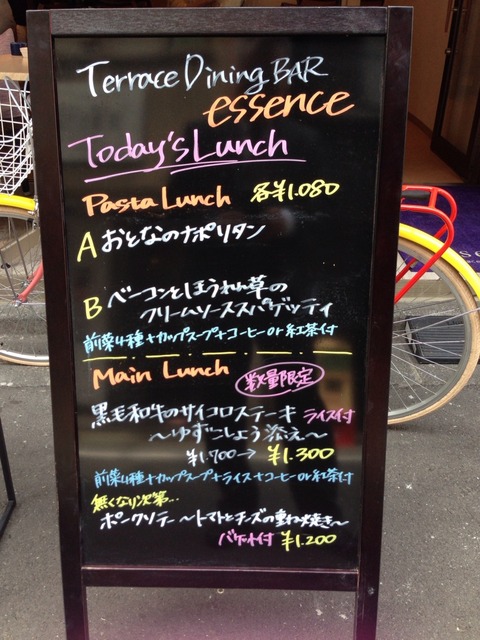 Terrace Dining BAR
essence
Today's Lunch
Pasta Lunch 各¥1.080
A おとなのナポリタン
B ベーコンとほうれん草の
クリームソーススパゲッティ
前菜4種+カップスープ+コーヒーor紅茶付
Main Lunch 数量限定
黒毛和牛のサイコロステーキ ライス付
〜ゆずこしょう添え〜
¥1.700→ ¥1.300
前菜4種+カップスープ+ライス+コーヒーor紅茶付
無くなり次第...
ポークソテー 〜トマトとチーズの重ね焼き〜
バゲット付 ¥1.200